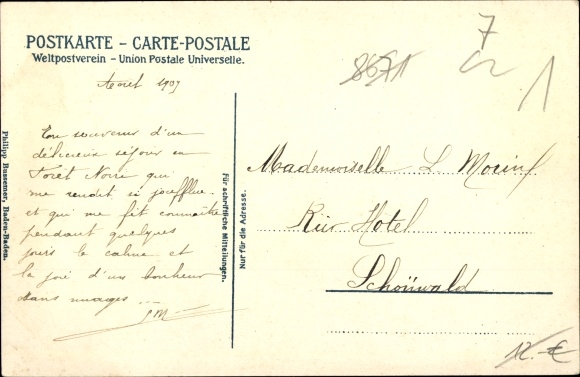 POSTKARTE – CARTE-POSTALE
Weltpostverein – Union Postale Universelle.
Août 1907
En souvenir d'un
délicieux séjour en
Foret Noire qui
me rendit si
et qui me fit connaître
pendant quelques
jours le calme et
la joie d'un bonheur
sans nuages
Mademoiselle L Morin
Kür Hotel
Schönwald
Für schriftliche Mitteilungen.
Nur für die Adresse.
Philipp Bussemer, Baden-Baden.
7
12.-€